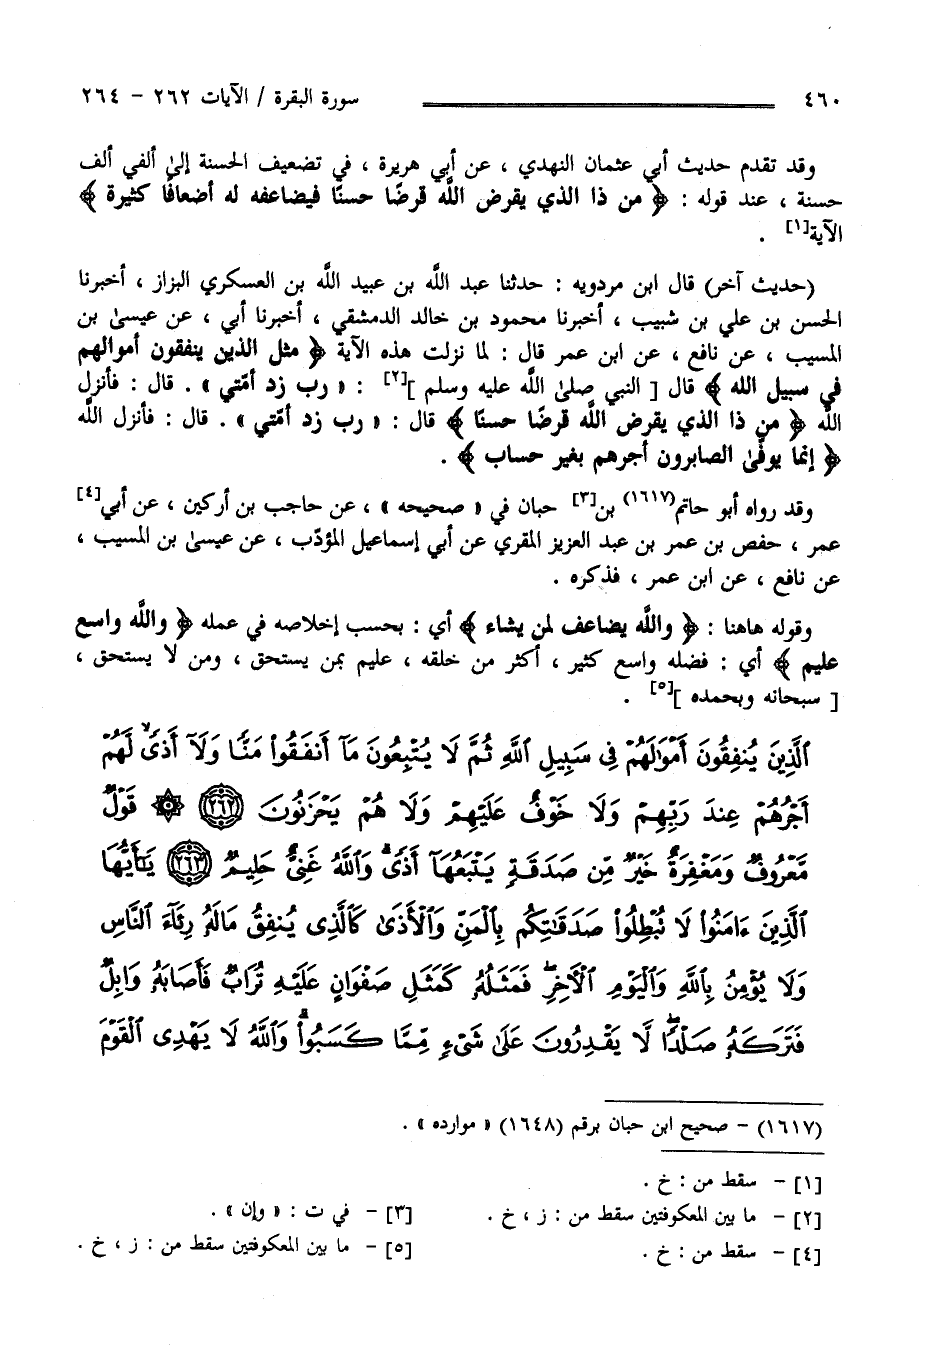 ٤٦٠ سورة البقرة / الآيات ٢٦٢ - ٢٦٤
وقد تقدم حديث أبي عثمان النهدي ، عن أبي هريرة ، في تضعيف الحسنة إلى ألفي ألف
حسنة ، عند قوله : ﴿ من ذا الذي يقرض اللَّه قرضًا حسنًا فيضاعفه له أضعافًا كثيرة ﴾
الآية[١] .
(حديث آخر) قال ابن مردويه : حدثنا عبد اللَّه بن عبيد اللَّه بن العسكري البزاز ، أخبرنا
الحسن بن علي بن شبيب ، أخبرنا محمود بن خالد الدمشقي ، أخبرنا أبي ، عن عيسىٰ بن
المسيب ، عن نافع ، عن ابن عمر قال : لما نزلت هذه الآية ﴿ مثل الذين ينفقون أموالهم
في سبيل الله ﴾ قال [ النبي صلىٰ اللَّه عليه وسلم ][٢] : « رب زد أمّتي » . قال : فأنزل
اللَّه ﴿ من ذا الذي يقرض اللَّه قرضًا حسنًا ﴾ قال : « رب زد أمّتي » . قال : فأنزل اللَّه
﴿ إنما يوفىٰ الصابرون أجرهم بغير حساب ﴾ .
وقد رواه أبو حاتم(١٦١٧) بن[٣] حبان في « صحيحه » ، عن حاجب بن أركين ، عن أبي[٤]
عمر ، حفص بن عمر بن عبد العزيز المقري عن أبي إسماعيل المؤدّب ، عن عيسىٰ بن المسيب ،
عن نافع ، عن ابن عمر ، فذكره .
وقوله هاهنا : ﴿ واللَّه يضاعف لمن يشاء ﴾ أي : بحسب إخلاصه في عمله ﴿ واللَّه واسع
عليم ﴾ أي : فضله واسع كثير ، أكثر من خلقه ، عليم بمن يستحق ، ومن لا يستحق ،
[ سبحانه وبحمده ][٥] .
ٱلَّذِينَ يُنفِقُونَ أَمْوَٰلَهُمْ فِى سَبِيلِ ٱللَّهِ ثُمَّ لَا يُتْبِعُونَ مَآ أَنفَقُوا۟ مَنًّا وَلَآ أَذًى ۙ لَّهُمْ
أَجْرُهُمْ عِندَ رَبِّهِمْ وَلَا خَوْفٌ عَلَيْهِمْ وَلَا هُمْ يَحْزَنُونَ ﴿٢٦٢﴾ ۞ قَوْلٌ
مَّعْرُوفٌ وَمَغْفِرَةٌ خَيْرٌ مِّن صَدَقَةٍ يَتْبَعُهَآ أَذًى ۗ وَٱللَّهُ غَنِىٌّ حَلِيمٌ ﴿٢٦٣﴾ يَٰٓأَيُّهَا
ٱلَّذِينَ ءَامَنُوا۟ لَا تُبْطِلُوا۟ صَدَقَٰتِكُم بِٱلْمَنِّ وَٱلْأَذَىٰ كَٱلَّذِى يُنفِقُ مَالَهُۥ رِئَآءَ ٱلنَّاسِ
وَلَا يُؤْمِنُ بِٱللَّهِ وَٱلْيَوْمِ ٱلْأَخِرِ ۖ فَمَثَلُهُۥ كَمَثَلِ صَفْوَانٍ عَلَيْهِ تُرَابٌ فَأَصَابَهُۥ وَابِلٌ
فَتَرَكَهُۥ صَلْدًا ۖ لَّا يَقْدِرُونَ عَلَىٰ شَىْءٍ مِّمَّا كَسَبُوا۟ ۗ وَٱللَّهُ لَا يَهْدِى ٱلْقَوْمَ
(١٦١٧) - صحيح ابن حبان برقم (١٦٤٨) « موارده » .
[١] - سقط من : خ .
[٢] - ما بين المعكوفتين سقط من : ز ، خ . [٣] - في ت : « وإن » .
[٤] - سقط من : خ . [٥] - ما بين المعكوفتين سقط من : ز ، خ .